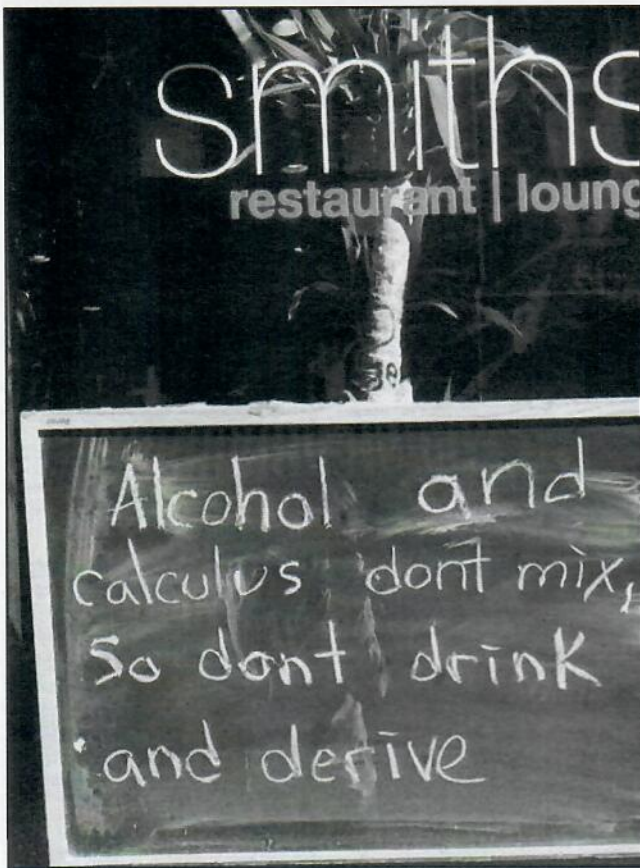 smiths
restaurant | loung
Alcohol and
calculus dont mix,
So dont drink
and derive